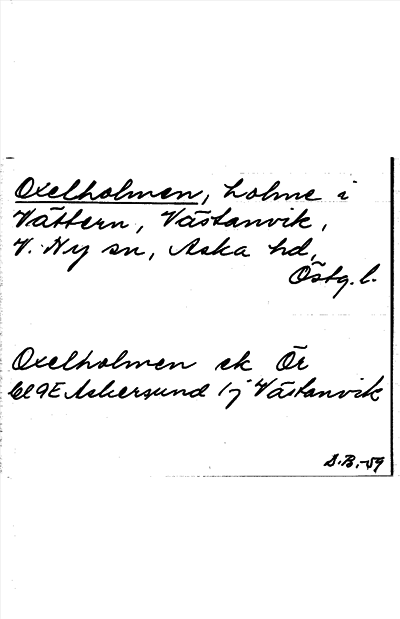 Oxelholmen, holme i
Vättern, Västanvik,
V. Ny sn, Aska hd,
Östg. l.
Oxelholmen ek Ör
bl 9E Askersund 1j Västanvik
S.B. -59